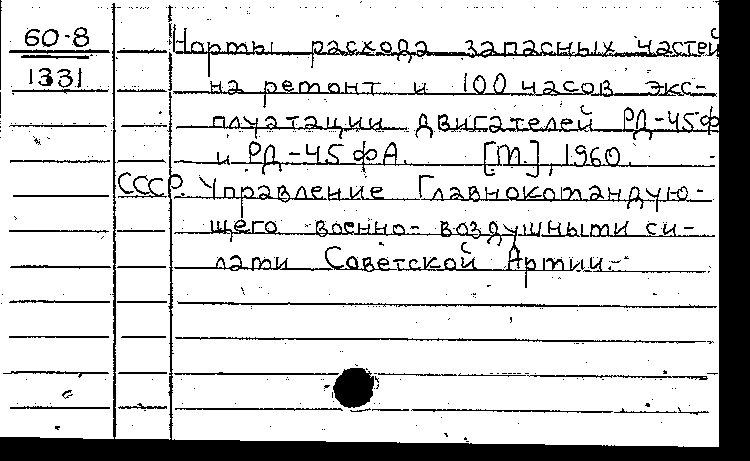 60-8
1331
Нормы расхода запасных частей
на ремонт и 100 часов экс-
плуатации двигателей РД-45Ф
и РД-45ФА. [М.], 1960.
СССР. Управление Главнокомандую-
щего военно-воздушными си-
лами Советской Армии.-